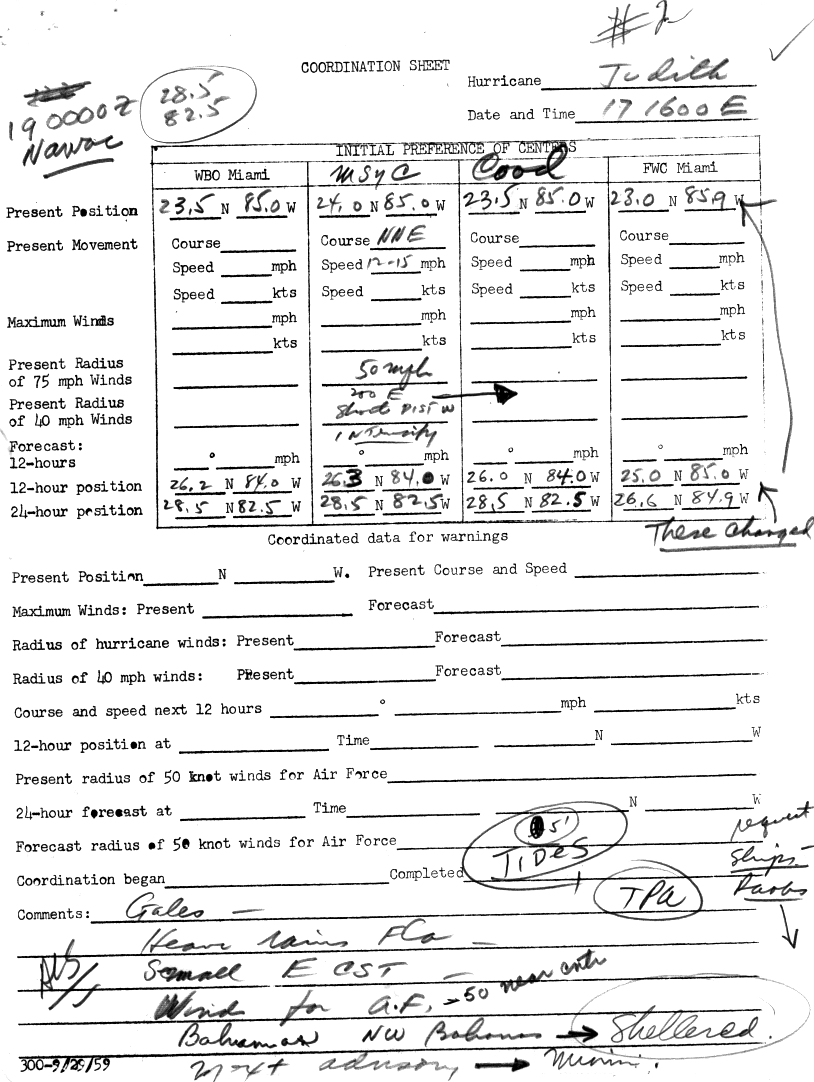 #2
COORDINATION SHEET
Hurricane Judith
Date and Time 17 1600 E
190000Z
28.5
82.5
Nawac
INITIAL PREFERENCE OF CENTERS
WBO Miami MSYC Coord FWC Miami
Present Position 23.5 N 85.0 W 24.0 N 85.0 W 23.5 N 85.0 W 23.0 N 85.9 W
Present Movement Course Course NNE Course Course
Speed mph Speed 12-15 mph Speed mph Speed mph
Speed kts Speed kts Speed kts Speed kts
Maximum Winds mph mph mph mph
kts kts kts kts
Present Radius of 75 mph Winds 50 mph
Present Radius of 40 mph Winds 200 E
Short DIST W
INTensity
Forecast:
12-hours ° mph ° mph ° mph ° mph
12-hour position 26.2 N 84.0 W 26.3 N 84.0 W 26.0 N 84.0 W 25.0 N 85.0 W
24-hour position 28.5 N 82.5 W 28.5 N 82.5 W 28.5 N 82.5 W 26.6 N 84.9 W
These changed
Coordinated data for warnings
Present Position N W. Present Course and Speed
Maximum Winds: Present Forecast
Radius of hurricane winds: Present Forecast
Radius of 40 mph winds: Present Forecast
Course and speed next 12 hours ° mph kts
12-hour position at Time N W
Present radius of 50 knot winds for Air Force
24-hour forecast at Time N W
Forecast radius of 50 knot winds for Air Force
5'
TIDES
request
Ships
Coordination began Completed
TPA
Comments: Gales —
Heavy rains Fla —
Small E CST —
Winds for A.F. - 50 near cntr
Bahamas NW Bahamas → Sheltered.
300-9/29/59 Next advisory → Miami.